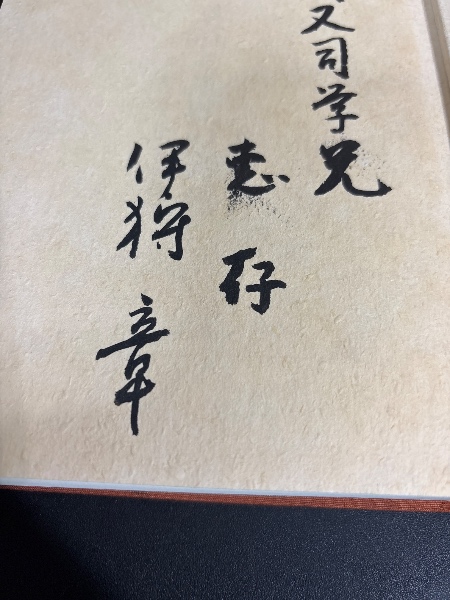 又司学兄
恵存
伊狩章